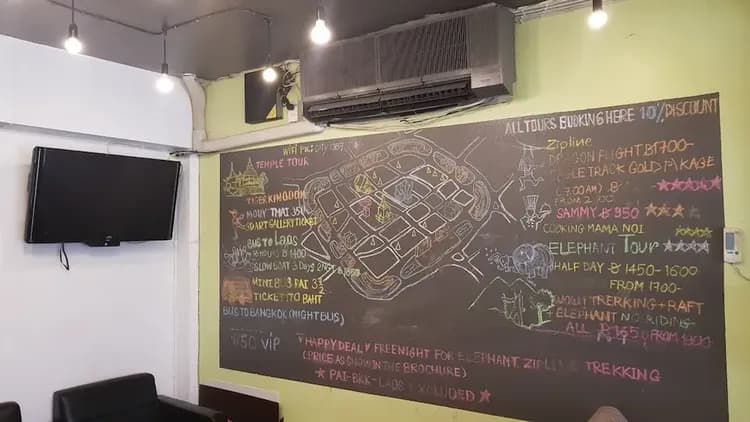 WIFI Pws: CITY 1389
TEMPLE TOUR
TIGER KINGDOM
MOUY THAI 350
3D ART GALLERY TICKET
BUS TO Laos
HOURS ฿ 1400
SLOW BOAT 3 Days 2
MINI BUS PAI 3½
TICKET 170 BAHT
BUS TO BANGKOK (NIGHT BUS)
VIP
♥ HAPPY DEAL ♥ FREE NIGHT FOR ELEPHANT. ZIPLINE TREKKING
(PRICE AS SHOW IN THE BROCHURE)
★ PAI-BKK-LAOS EXCLUDED ★
ALL TOURS BOOKING HERE 10% DISCOUNT
Zipline
DRAGON FLIGHT ฿1700-
EAGLE TRACK GOLD PACKAGE
(7.00AM) ฿
FROM
SAMMY ฿ 950
COOKING MAMA NOI
ELEPHANT Tour
HALF DAY ฿ 1450-1600
FROM 1700-
TRERKING+RAFT
+ELEPHANT NO RIDING-
ALL ฿ FROM 1900